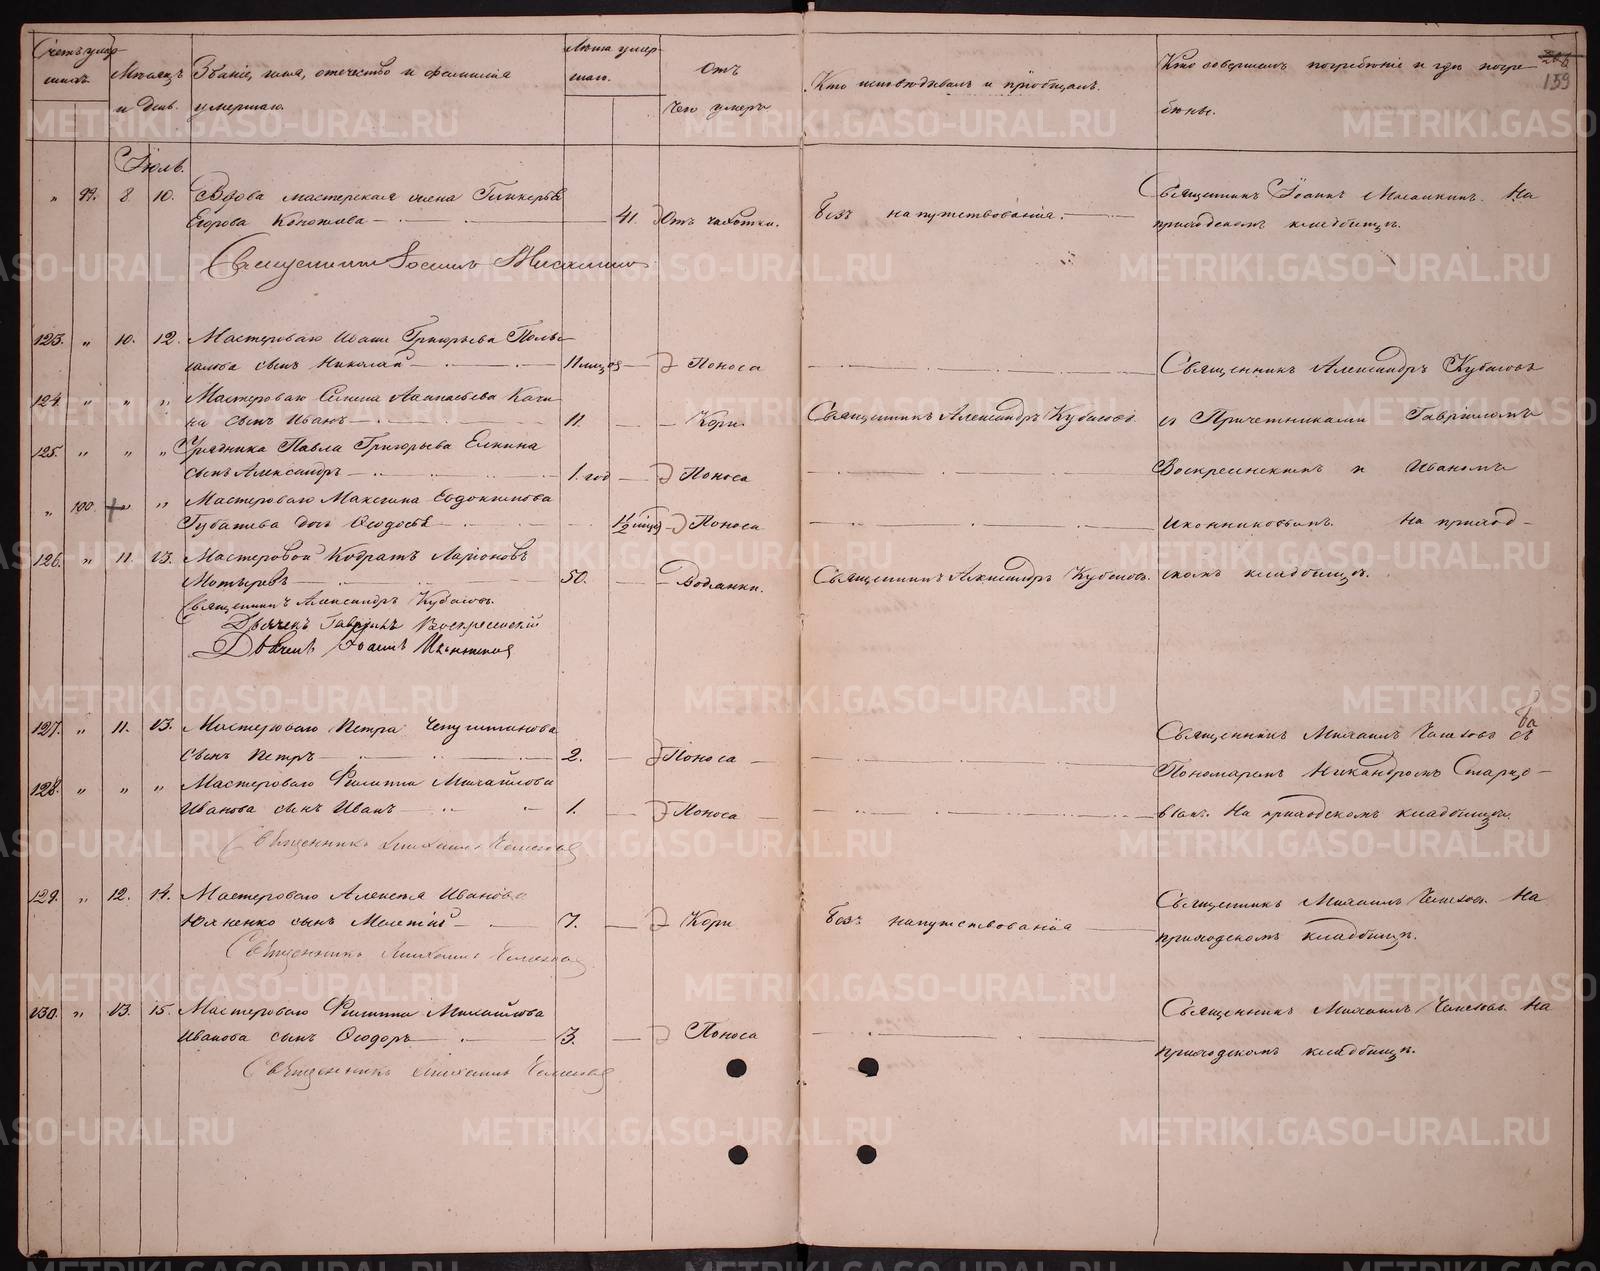 Счетъ умер-
шихъ.
Мѣсяцъ
и день.
Званіе, имя, отечество и фамилія
умершаго.
Лѣта умер-
шаго.
Отъ
чего умеръ
Кто исповѣдывалъ и пріобщалъ.
Кто совершалъ погребеніе и гдѣ погре-
бены.
159
Іюль.
„ 99. 8. 10. Вдова мастерская жена
Егорова 41. Отъ чахотки. Безъ напутствованія.
Священникъ Іоаннъ На
приходскомъ кладбищѣ.
Священникъ
123. „ 10. 12. Мастероваго Ивана Григорьева
сынъ Николай 11 мцов Поноса
Священникъ Александръ Кубасовъ
124 „ „ „ Мастероваго Аѳанасьева
на сынъ Иванъ 11. Кори. Священникъ Александръ Кубасовъ.
съ Причетниками Гавріиломъ
125. „ „ „ Урядника Павла Григорьева Елкина
сынъ Александръ 1. год Поноса
Воскресенскимъ и Иваномъ
„ 100. „ „ Мастероваго Максима Евдокимова
дочь Ѳеодосья 1/2 Поноса
Иконниковымъ. На приход-
126. „ 11. 13. Мастеровой Кодратъ Ларіоновъ
50. Водянки. Священникъ Александръ Кубасовъ.
скомъ кладбищѣ.
Священникъ Александръ Кубасовъ.
Дьячекъ Гавріилъ Воскресенскій
Дьячекъ Іоаннъ
127. „ 11. 13. Мастероваго Петра
сынъ Петръ 2. Поноса
Священникъ Михаилъ съ
Пономаремъ Никандромъ Старцо-
128. „ „ „ Мастероваго Филиппа Михайлова
Иванова сынъ Иванъ 1. Поноса
вымъ. На приходскомъ кладбищѣ.
Священникъ Михаилъ
129. „ 12. 14. Мастероваго Алексѣя Иванова
Юхненко сынъ Мелетій 7. Кори Безъ напутствованія
Священникъ Михаилъ На
приходскомъ кладбищѣ.
Священникъ Михаилъ
130. „ 13. 15. Мастероваго Филиппа Михайлова
Иванова сынъ Ѳеодоръ 3. Поноса
Священникъ Михаилъ На
приходскомъ кладбищѣ.
Священникъ Михаилъ
METRIKI.GASO-URAL.RU